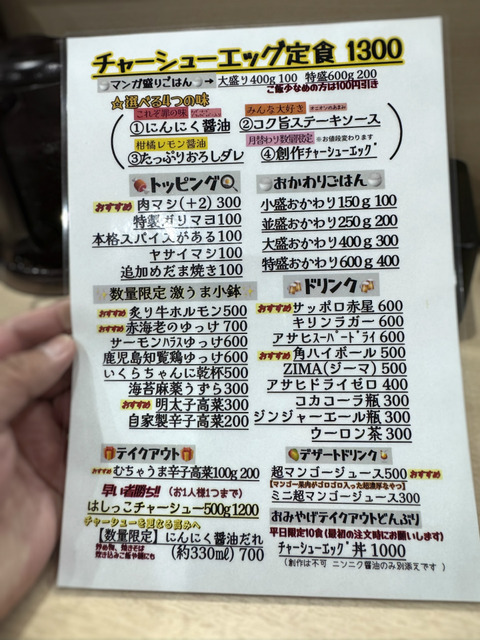 チャーシューエッグ定食 1300
マンガ盛りごはん → 大盛り400g 100 特盛600g 200
ご飯少なめの方は100円引き
☆選べる4つの味
これぞ罪の味
①にんにく醤油
みんな大好き
②コク旨ステーキソース
柑橘レモン醤油
③たっぷりおろしダレ
月替わり数量限定 ※お値段変わります
④創作チャーシューエッグ
トッピング
おすすめ 肉マシ(+2) 300
特製ガリマヨ100
本格スパイスがある100
ヤサイマシ100
追加めだま焼き100
おかわりごはん
小盛おかわり150g 100
並盛おかわり250g 200
大盛おかわり400g 300
特盛おかわり600g 400
数量限定 激うま小鉢
おすすめ 炙り牛ホルモン500
おすすめ 赤海老のゆっけ 700
サーモンハラスゆっけ600
鹿児島知覧鶏ゆっけ600
いくらちゃんに乾杯500
海苔麻薬うずら300
おすすめ 明太子高菜300
自家製辛子高菜200
ドリンク
おすすめ サッポロ赤星 600
キリンラガー 600
アサヒスーパードライ 600
おすすめ 角ハイボール 500
ZIMA(ジーマ) 500
アサヒドライゼロ 400
コカコーラ瓶 300
ジンジャーエール瓶 300
ウーロン茶 300
テイクアウト
おすすめ むちゃうま辛子高菜100g 200
早い者勝ち!! (お1人様1つまで)
はしっこチャーシュー500g 1200
チャーシューを更なる高みへ
【数量限定】にんにく醤油だれ
炒め物、焼きそば
炊き込みご飯や鍋にも
(約330㎖) 700
デザートドリンク
超マンゴージュース500 おすすめ
【マンゴー果肉がゴロゴロ入った超濃厚なやつ】
ミニ超マンゴージュース300
おみやげテイクアウトどんぶり
平日限定10食(最初の注文時にお願いします)
チャーシューエッグ丼 1000
(創作は不可 ニンニク醤油のみ別添えです)